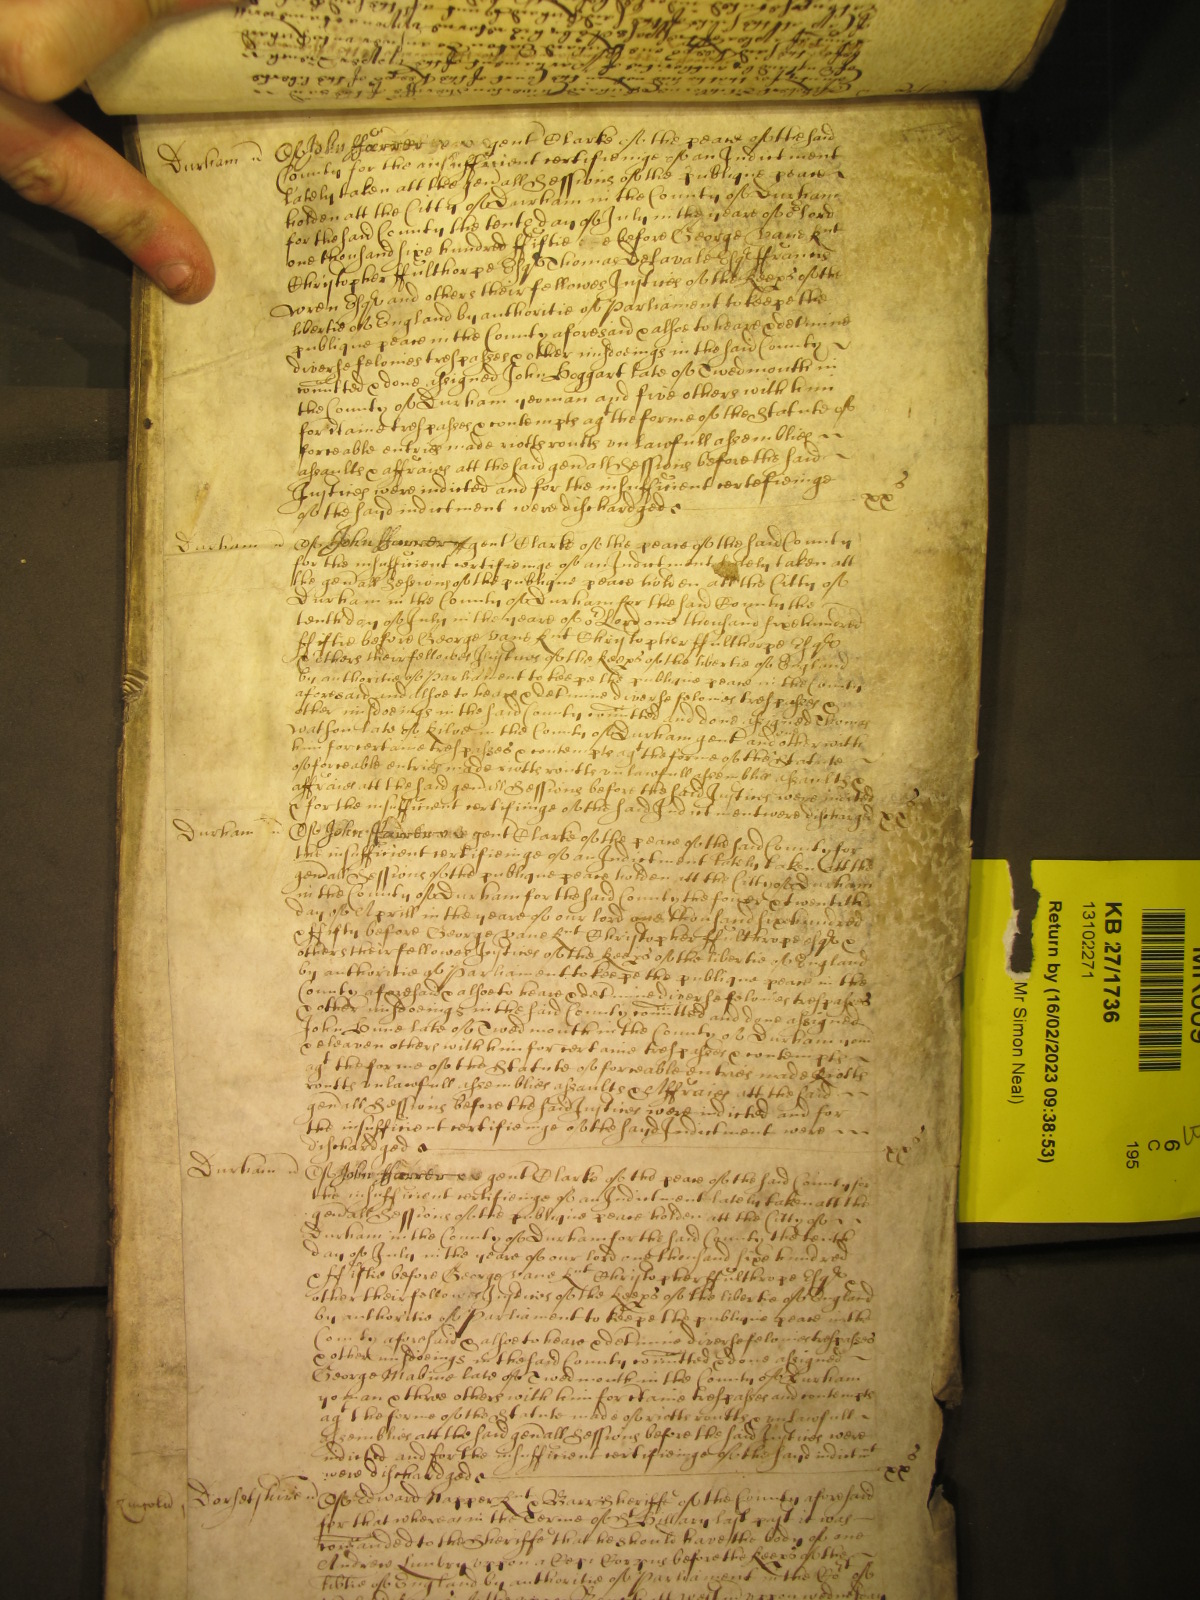 Durham Of John Farrer gent Clarke of the peace of the said
County for the insufficient certifieinge of an Indictment
lately taken att the gen'all Sessions of the publique peace
holden att the Citty of Durham in the County of Durham
for the said County the tenth day of July in the yeare of o'r Lord
one thousand sixe hundred ffiftie before George Vane kn't
Christopher ffulthorpe Esq'r Thomas Delavale Esq'r ffrancis
Wren Esq'r and others their fellowes Justices of the keep's of the
libertie of England by authoritie of Parliament to keepe the
publique peace in the County aforesaid & alsoe to heare & det'mine
diverse felonies trespasses & other misdoeings in the said County
comitted & done assigned John Boggart late of Twedmouth in
the County of Durham yeoman and five others with him
for c'taine trespasses & contempts ag't the forme of the Statute of
forceable entries made riotts routts unlawfull assemblies
assaults & affraies att the said gen'all Sessions before the said
Justices were indicted and for the insufficient certefieinge
of the said indictment were dischardged
xx s
Durham Of John Farrer gent Clarke of the peace of the said County
for the insufficient certifieinge of an Indictment lately taken att
the gen'all Sessions of the publique peace holden att the Citty of
Durham in the County of Durham for the said County the
tenth day of July in the yeare of o'r Lord one thousand sixe hundred
ffiftie before George Vane kn't Christopher ffulthorpe Esq'r
& others their fellowes Justices of the keep's of the libertie of England
by authoritie of Parliament to keepe the publique peace in the County
aforesaid and alsoe to heare & det'mine diverse felonies trespasses &
other misdoeings in the said County comitted and done assigned
Watson late of in the County of Durham gent and other with
him for certaine trespasses & contempts ag't the forme of the Statute
of forceable entries made riotts routts unlawfull assemblies assaults &
affraies att the said gen'all Sessions before the said Justices were indicted
& for the insufficient certifieinge of the said Indictment were discharged
xx s
Durham Of John Farrer gent Clarke of the peace of the said County for
the insufficient certifieinge of an Indictment lately taken att the
gen'all Sessions of the publique peace holden att the Citty of Durham
in the County of Durham for the said County the fower & twentith
day of Aprill in the yeare of our lord one thousand sixe hundred
& ffifty before George Vane kn't Christopher ffulthrope Esq'r &
others their fellowes Justices of the keep's of the libertie of England
by authoritie of Parliament to keepe the publique peace in the
County aforesaid & alsoe to heare & det'mine diverse felonies trespasses
& other misdoeings in the said County comitted and done assigned
John late of Twedmouth in the County of Durham
& eleaven others with him for certaine trespasses & contempts
ag't the forme of the Statute of forceable entries made Riotts
routts unlawfull assemblies assaults & Affraies att the said
gen'all Sessions before the said Justices were indicted and for
the insufficient certifieinge of the said Indictment were
dischardged
xx s
Durham Of John Farrer gent Clarke of the peace of the said County for
the insufficient certifieinge of an Indictment lately taken att the
gen'all Sessions of the publique peace holden att the Citty of
Durham in the County of Durham for the said County the tenth
day of July in the yeare of our lord one thousand sixe hundred
& ffiftie before George Vane kn't Christopher ffulthrope Esq'r &
other their fellowes Justices of the keep's of the libertie of England
by authoritie of Parliament to keepe the publique peace in the
County aforesaid & alsoe to heare & det'mine diverse felonies trespasses
& other misdoeings in the said County comitted & done assigned
George late of Twedmouth in the County of Durham
yoman & three others with him for c'taine trespasses and contempts
ag't the forme of the Statute made of riotts routts & unlawfull
Assemblies att the said gen'all Sessions before the said Justices were
indicted and for the insufficient certifieinge of the said indictm't
were dischardged
xx s
Dorsetshire Of Edward Napper kn't & Barr' Sheriffe of the County aforesaid
for that whereas in the Terme of S't Hillary last past it was
com'anded to the Sheriffe that he should have the body of one
Andrew uppon a Cepi Corpus before the keep's of the
lib'tie of England by authoritie of Parliament in the
KB 27/1736
13102271
Return by (16/02/2023 09:38:53)
Mr Simon Neal)
6
C
195